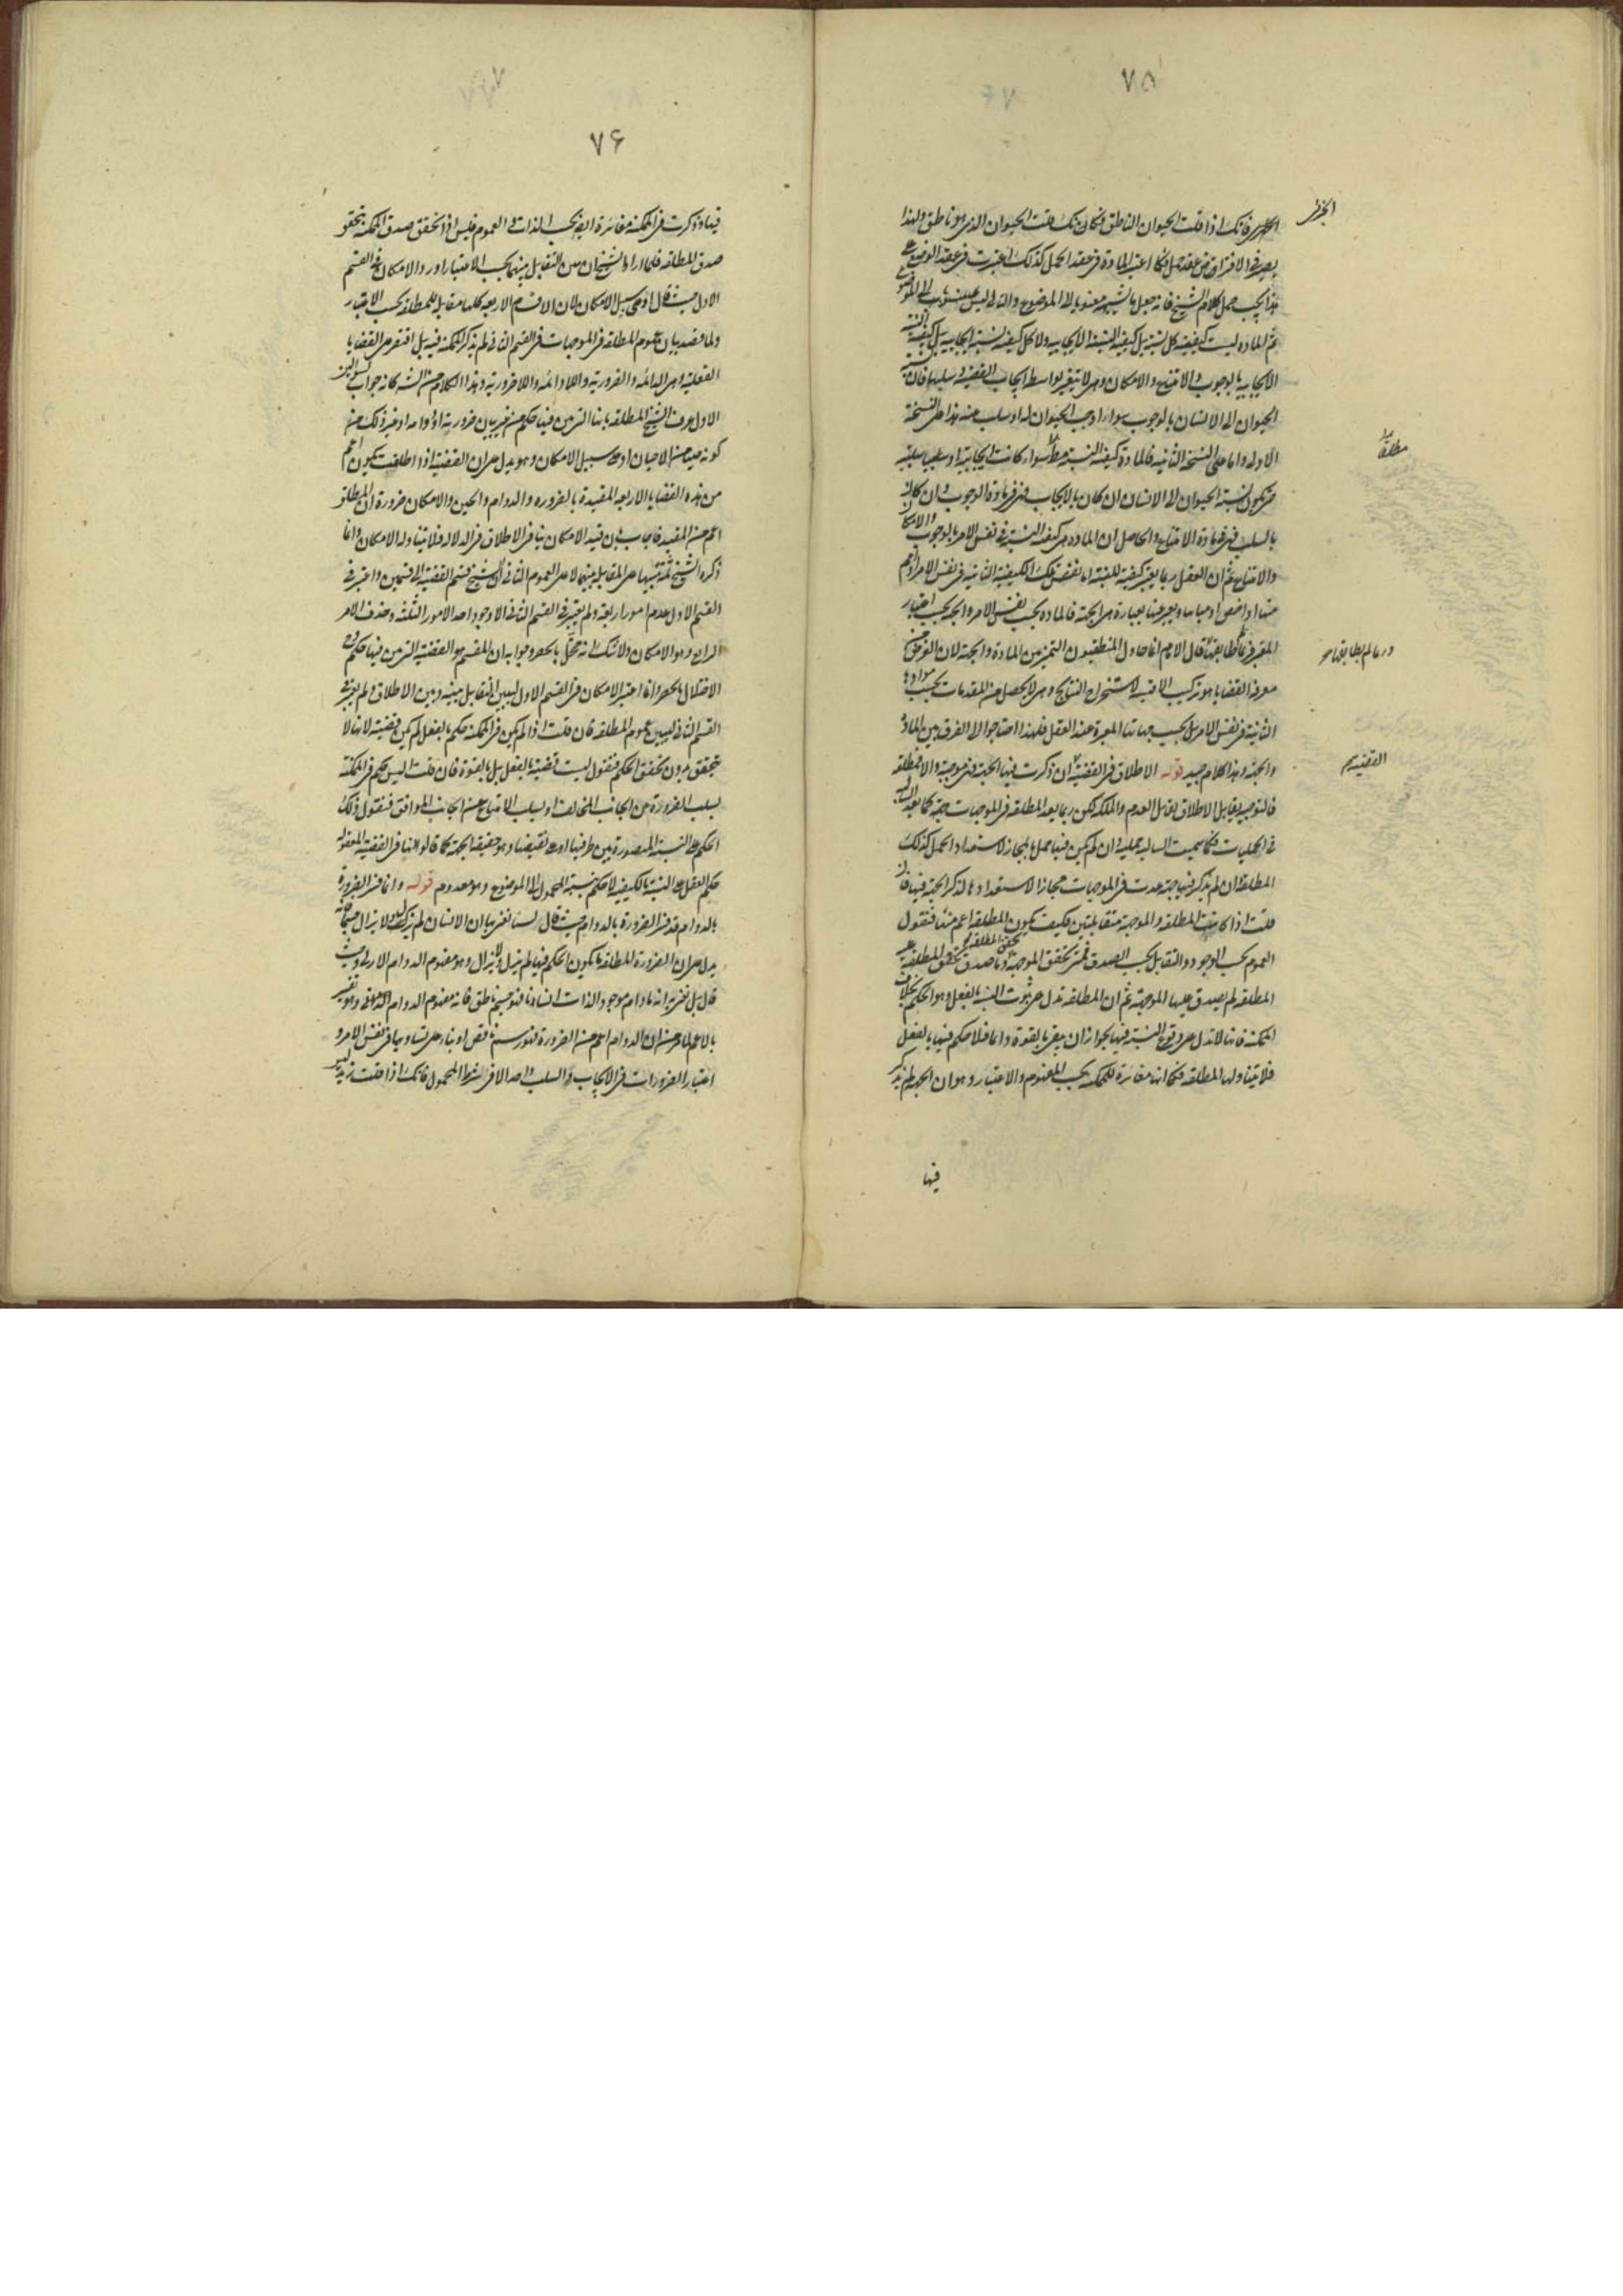 ٧٥
الخبرى
فانك اذا قلت الحيوان الناطق فكانك قلت الحيوان الذى هو ناطق ولهذا
عقد حمل فكما اعتبر المادة فى عقد الحمل كذلك اعتبرت فى عقد الوضع
هذا يجب حمل كلام الشيخ فانه جعل ما الموضوع والتالى ليس
ثم المادة ليست كيفية كل نسبة بل كيفية النسبة الايجابية ولا كل كيفية نسبة ايجابية بل كيفية النسبة
الايجابية بالوجوب والامتناع والامكان وهى لا تتغير بواسطة ايجاب القضية وسلبها فان نسبة
الحيوان الى الانسان بالوجوب سواء اوجب الحيوان له او سلب عنه هذا على النسخة
الاولى واما على النسخة الثانية فالمادة كيفية النسبة مطلقا سواء كانت ايجابية او سلبية
نسبة الحيوان الى الانسان ان كان بالايجاب فهى فى مادة الوجوب وان كان
بالسلب فهى فى مادة الامتناع والحاصل ان المادة هى كيفية النسبة فى نفس الامر بالوجوب والامكان
والامتناع ثم ان العقل ربما يعتبر كيفية للنسبة اما نفس تلك الكيفية الثابتة فى نفس الامر او اعم
منها او اخص او مباينا ويعبر عنها بعبارة هى الجهة فالمادة بحسب نفس الامر والجهة بحسب اعتبار
المعتبر فربما طابقتها قال الامام انما حاول المنطقيون التميز بين المادة والجهة لان الغرض من
معرفة القضايا هو تركيب الاقيسة لاستخراج النتايج وهى لا يحصل من المقدمات بحسب موادها
الثابتة فى نفس الامر بل بحسب جهاتها المعتبرة عند العقل فلهذا احتاجوا الى الفرق بين المادة
والجهة وهذا كلام جيد قوله الاطلاق فى القضية ان ذكرت فيها الجهة فهى موجهة والا فمطلقة
فالتوجيه يقابل الاطلاق تقابل العدم والملكة لكن ربما يعد المطلقة فى الموجهات كما يعد السالبة
فى الحمليات فكما سميت السالبة حملية وان لم يكن فيها حمل بالمجاز لاستعداد الحمل كذلك
المطلقة ان لم يذكر فيها جهة عدت فى الموجهات مجازا لاستعدادها لذكر الجهة فيها فان
قلت اذا كانت المطلقة والموجهة متقابلتين فكيف يكون المطلقة اعم منها فنقول
العموم بحسب الوجود والتقابل بحسب الصدق فمتى تحقق الموجهة تحقق المطلقة وما صدق
المطلقة لم يصدق عليها الموجهة ثم ان المطلقة تدل على ثبوت النسبة بالفعل وهو الحكم بخلاف
الممكنة فانها لا تدل على وقوع النسبة فيها لجواز ان يبقى بالقوة دائما فلا حكم فيها بالفعل
فلا يتناولها المطلقة فكما انها مغايرة للممكنة بحسب المفهوم والاعتبار وهو ان الجهة لم يذكر
فيها
مطلقا
وربما لم يطابقها
القضية
٧۶
فيها وذكرت فى الممكنة مغايرة ايضا بحسب الذات فى العموم فليس اذا تحقق صدق الممكنة تحقق
صدق المطلقة فلما اراد الشيخ ان يبين التقابل بينهما بحسب الاعتبار اورد الامكان فى القسم
الاول حيث قال او على سبيل الامكان لان الاقسام الاربعة كلها مقابلة للمطلقة بحسب الاعتبار
ولما قصد بيان عموم المطلقة فى الموجهات فى القسم الثانى لم يذكر الممكنة فيه بل اقتصر على القضايا
الفعلية وهى الدائمة والضرورية واللادائمة واللاضرورية وهذا الكلام من الشارح كانه جواب لسوالين
الاول عرف الشيخ المطلقة بانها التى بين فيها حكم من غير بيان ضرورية او دوامه او غير ذلك من
كونه حينا من الاحيان او على سبيل الامكان وهو يدل على ان القضية اذا اطلقت يكون اعم
من هذه القضايا الاربعة المقيدة بالضرورة والدوام والحين والامكان ضرورة ان المطلق
اعم من المقيد فاجاب بان قيد الامكان ينافى الاطلاق فى الدلالة فلا يتناوله الامكان وانما
ذكره الشيخ ثمة تنبيها على المقابلة بينهما لا على العموم الثانى ان الشيخ قسم القضية الى قسمين واعتبر فى
القسم الاول عدم امور اربعة ولم يعتبر فى القسم الثانى الا وجود احد الامور الثلثة وحذف الامر
الرابع وهو الامكان ولا شك انه مخل بالحصر وجوابه ان المقسم هو القضية التى بين فيها حكم فلا
الاختلال بالحصر وانما اعتبر الامكان فى القسم الاول ليبين التقابل بينه وبين الاطلاق ولم يعتبر فى
القسم الثانى ليبين عموم المطلقة فان قلت اذا لم يكن فى الممكنة حكم بالفعل لم يكن قضية لانها لا
تتحقق بدون تحقق الحكم فنقول ليست قضية بالفعل بل بالقوة فان قلت اليس حكم فى الممكنة
بسلب الضرورة من الجانب المخالف او بسلب الامتناع عن الجانب الموافق فنقول ذلك
الحكم على النسبة المتصورة بين طرفيها او على نقيضها وهو حقيقة الجهة كما قالوا انها فى القضية المعقولة
حكم العقل على النسبة بالكيفية لا حكم بنسبة المحمول الى الموضوع وهو معدوم قوله وانما فسر الضرورة
بالدوام قد فسر الضرورة بالدوام حيث قال لسنا نعنى بها ان الانسان لم يزل ولا يزال جسما فانه
يدل على ان الضرورة المطلقة ما يكون الحكم فيها لم يزل ولا يزال وهو مفهوم الدوام الازلى وحيث
قال بل نعنى به انه ما دام موجود الذات انسانا فهو جسم ناطق فانه مفهوم الدوام الذاتى وهو تفسير
بالاعم لما مر من ان الدوام اعم من الضرورة فهو رسم ناقص او بناء على تساويهما فى نفس الامر و
اعتبار الضرورات فى الايجاب والسلب واحد الا فى شرط المحمول فانك اذا قلت زيد ليس